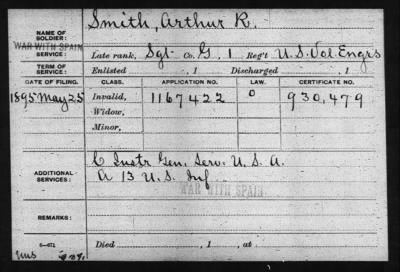 NAME OF SOLDIER: Smith, Arthur R.
WAR WITH SPAIN
SERVICE: Late rank, Sgt Co. G, 1 Reg't U.S. Vol Engrs
TERM OF SERVICE: Enlisted , 1 Discharged , 1
DATE OF FILING. CLASS. APPLICATION NO. LAW. CERTIFICATE NO.
1895 May 25 Invalid, 1167422 0 930,479
Widow,
Minor,
ADDITIONAL SERVICES: C Instr Gen. Serv. U.S.A.
A 13 U.S. Inf
WAR WITH SPAIN
REMARKS:
Died , 1 , at